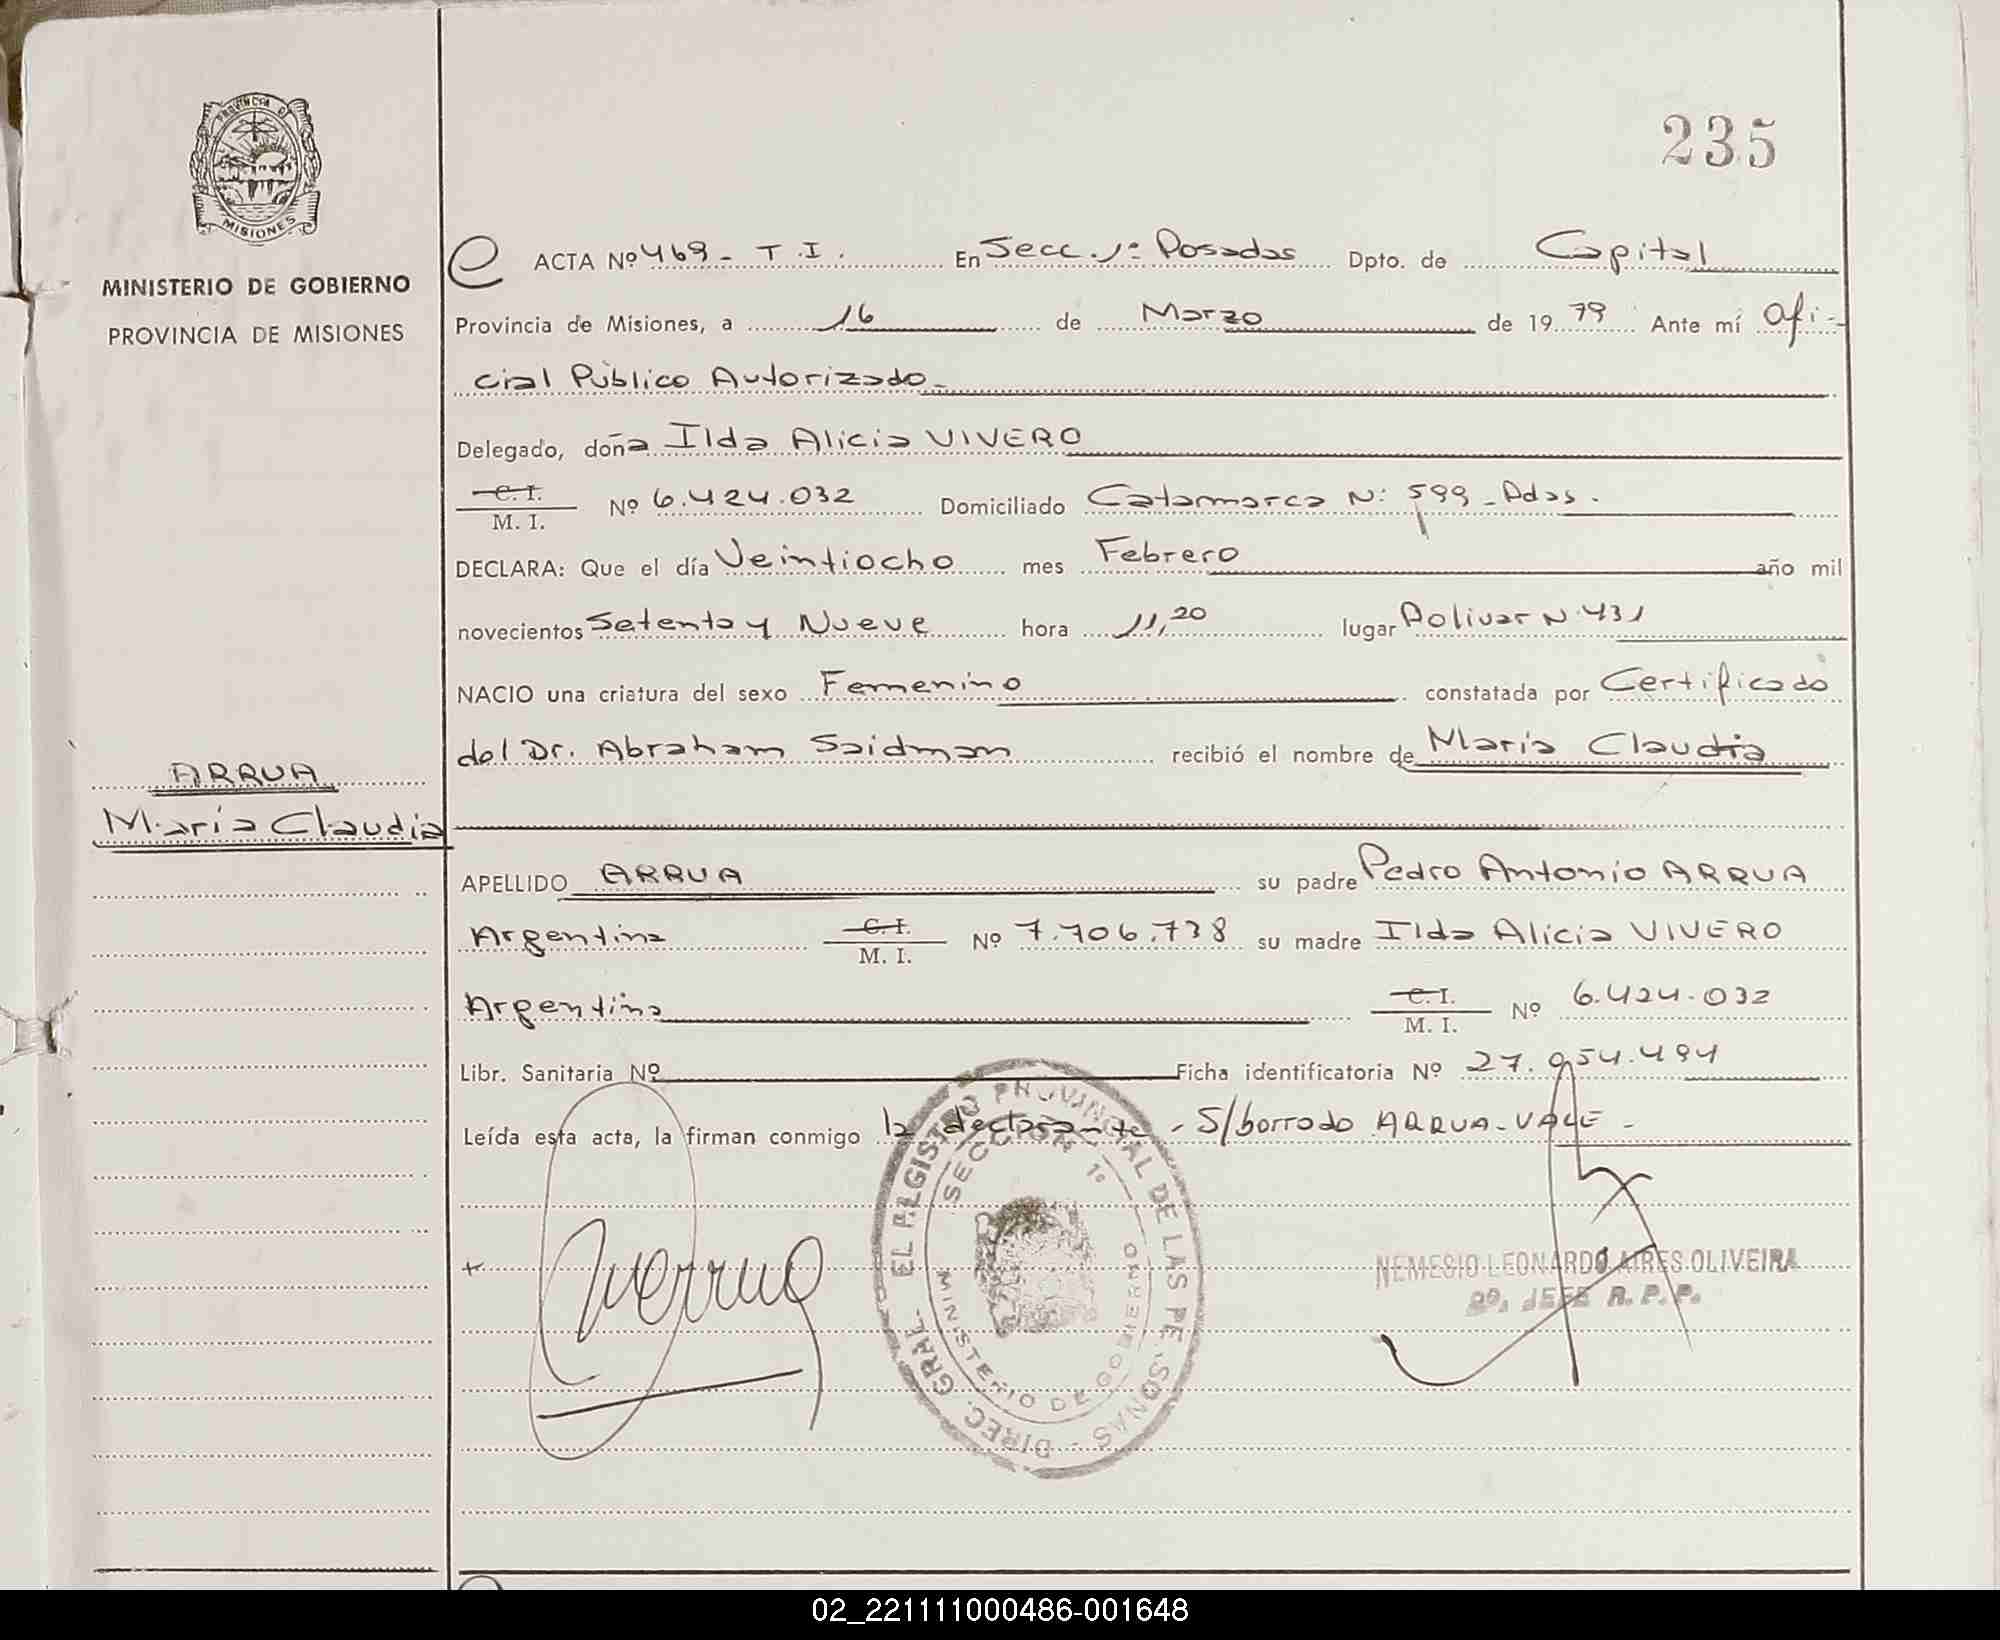 PROVINCIA D
MISIONES
MINISTERIO DE GOBIERNO
PROVINCIA DE MISIONES
235
ACTA Nº 469 - T.I. En Secc. 1ª Posadas Dpto. de Capital
Provincia de Misiones, a 16 de Marzo de 1979 Ante mí Ofi-
cial Público Autorizado -
Delegado, doña Ilda Alicia VIVERO
C. I. / M. I. Nº 6.424.032 Domiciliado Catamarca Nº 599 - Pdas.
DECLARA: Que el día Veintiocho mes Febrero año mil
novecientos Setenta y Nueve hora 11,20 lugar Bolivar Nº 431
NACIO una criatura del sexo Femenino constatada por Certificado
del Dr. Abraham Saidman recibió el nombre de María Claudia
ARRUA
María Claudia
APELLIDO ARRUA su padre Pedro Antonio ARRUA
Argentina C. I. / M. I. Nº 7.706.738 su madre Ilda Alicia VIVERO
Argentina C. I. / M. I. Nº 6.424.032
Libr. Sanitaria Nº Ficha identificatoria Nº 27.054.494
Leída esta acta, la firman conmigo la declarante - S/borrado ARRUA - VALE -
DIREC. GRAL. DEL REGISTRO PROVINCIAL DE LAS PERSONAS -
SECCION 1º
MINISTERIO DE GOBIERNO
NEMESIO LEONARDO AIRES OLIVEIRA
2º. JEFE R. P. P.
02_221111000486-001648